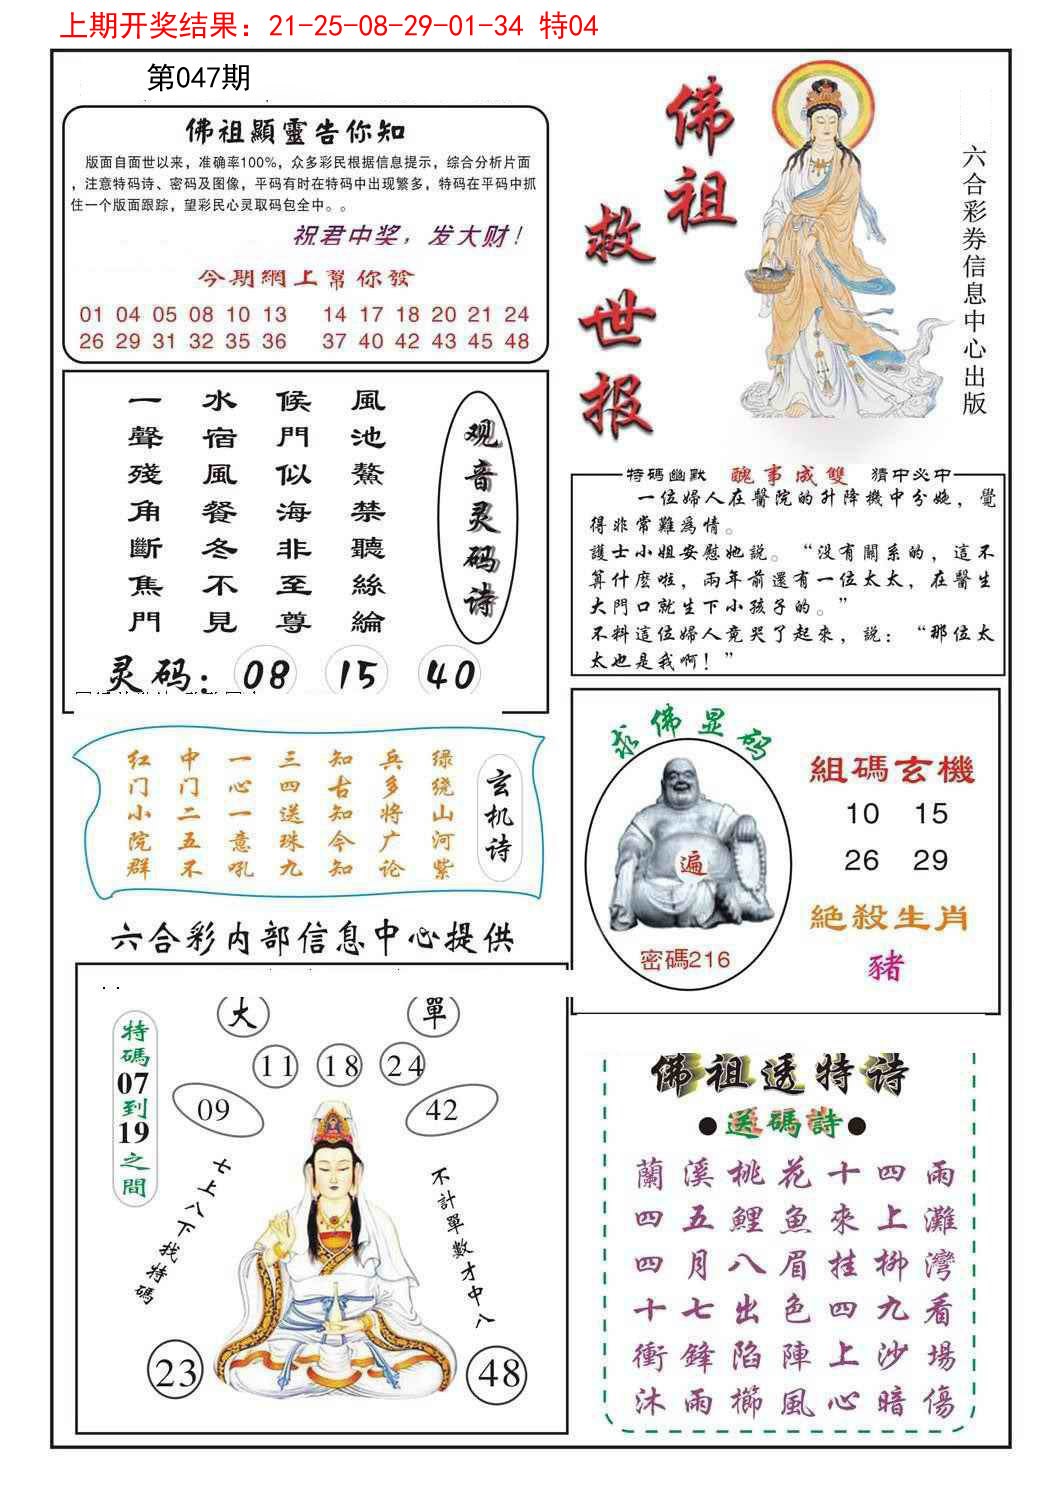 上期开奖结果：21-25-08-29-01-34 特04
第047期
佛祖顯靈告你知
版面自面世以来，准确率100%，众多彩民根据信息提示，综合分析片面
，注意特码诗、密码及图像，平码有时在特码中出现繁多，特码在平码中抓
住一个版面跟踪，望彩民心灵取码包全中。。
祝君中奖，发大财！
今期網上幫你發
01 04 05 08 10 13 14 17 18 20 21 24
26 29 31 32 35 36 37 40 42 43 45 48
佛祖
救世报
六合彩券信息中心出版
观音灵码诗
風池鰲禁聽絲綸
候門似海非至尊
水宿風餐冬不見
一聲殘角斷焦門
灵码：08 15 40
特碼幽默 醜事成雙 猜中必中
一位婦人在醫院的升降機中分娩，覺
得非常難為情。
護士小姐安慰她說。“没有關系的，這不
算什麽啦，兩年前還有一位太太，在醫生
大門口就生下小孩子的。”
不料這位婦人竟哭了起來，説：“那位太
太也是我啊！”
玄机诗
绿绕山河紫
兵多将广论
知古知今知
三四送珠九
一心一意吼
中门二五不
红门小院群
求佛显码
遍
密碼216
組碼玄機
10 15
26 29
絶殺生肖
豬
六合彩内部信息中心提供
大 單
11 18 24
09 42
特碼07到19之間
七上八下找特碼
不計單數才中八
23 48
佛祖透特诗
●送碼詩●
蘭溪桃花十四雨
四五鯉魚來上灘
四月八眉挂柳灣
十七出色四九看
衝鋒陷陣上沙場
沐雨櫛風心暗傷